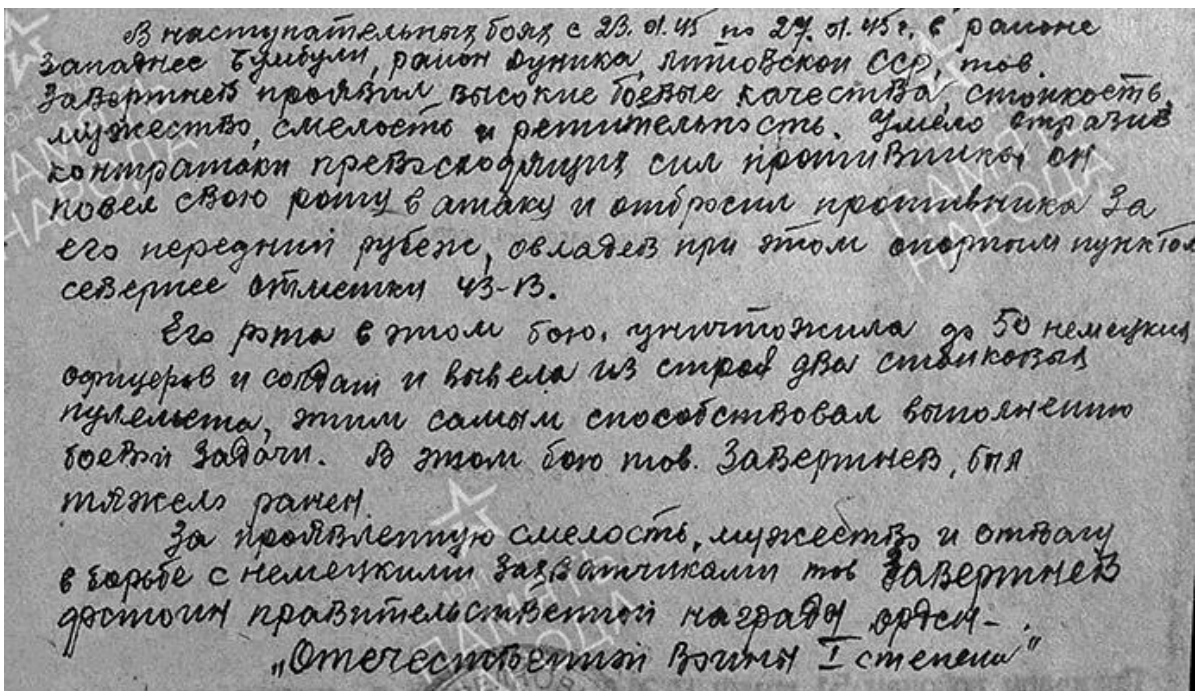 В наступательных боях с 23.01.45 по 27.01.45 г. в районе
Западнее Бумбули, район Дуника, Литовской ССР, тов.
Завертнев проявил высокие боевые качества, стойкость,
мужество, смелость и решительность. Умело отразив
контратаки превосходящих сил противника, он
повел свою роту в атаку и отбросил противника за
его передний рубеж, овладев при этом опорным пунктом
севернее отметки 43-В.
Его рота в этом бою, уничтожила до 50 немецких
офицеров и солдат и вывела из строя два станковых
пулемета, этим самым способствовал выполнению
боевой задачи. В этом бою тов. Завертнев, был
тяжело ранен.
За проявленную смелость, мужество и отвагу
в борьбе с немецкими захватчиками тов Завертнев
достоин правительственной награды орден-
„Отечественной войны I степени"
ПАМЯТЬ
НАРОДА
ПАМЯТЬ
НАРОДА
ПАМЯТЬ
НАРОДА